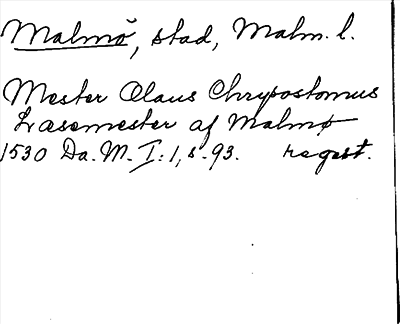 Malmö, stad, Malm. l.
Mester Olaus Chrysostomus
Læsemester af Malmø
1530 Da. M. I: 1, s. 93. regest.